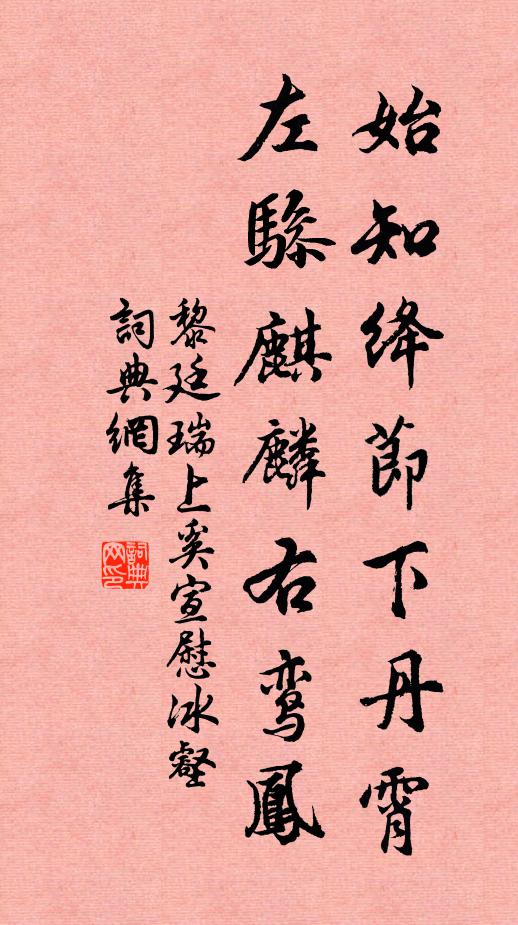 始知绛節下丹霄
左驂麒麟右鸾鳳
黎廷瑞上奚宣慰冰壑
詞典網集
詞典
网印